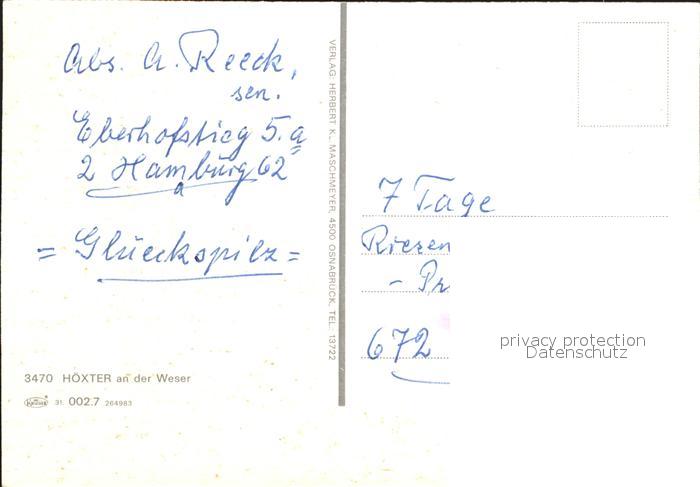 Abs. A. Reeck,
sen.
Eberhofstieg 5.a
2 Hamburg 62
= Glückspilz =
3470 HÖXTER an der Weser
KRÜGER 31. 002.7 264983
VERLAG: HERBERT K. MASCHMEYER, 4500 OSNABRÜCK, TEL. 13722
7 Tage
Riesen
- Pr
672
privacy protection
Datenschutz